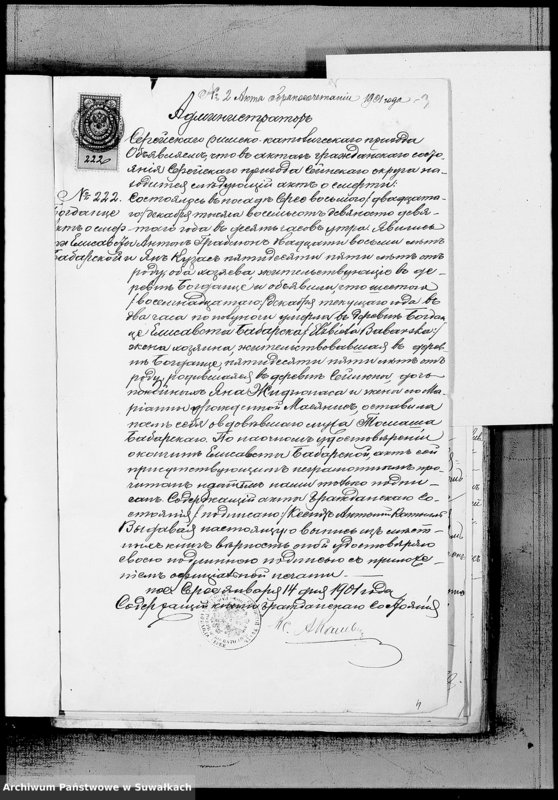 № 2 Акта бракосочетанія 1901 года
Администраторъ
Сереjскаго римско-католическаго прихода
Объявляетъ, что въ актахъ гражданскаго состо-
янія Сереjскаго прихода Сейнскаго округа на-
ходится слѣдующій актъ о смерти:
№ 222. Состоялось въ посадѣ Сереѣ восьмаго/двадцата-
Богданце го/декабря тысяча восемьсотъ девяносто девя-
актъ о смер- таго года въ десять часовъ утра. Явились
Елисавета Антонъ двадцати восьми лѣтъ
Бабарская и Янъ пятидесяти пяти лѣтъ отъ
роду, оба хозяева, жительствующіе въ де-
ревнѣ Богданце и объявили, что шестаго
/восемнадцатаго/ декабря текущаго года въ
два часа по полуночи умерла въ деревнѣ Богдан-
це Елисавета Бабарска/Elżbieta Babarska/
жена хозяина, жительствовавшая въ дерев-
нѣ Богданце, пятидесяти пяти лѣтъ отъ
роду, родившаяся въ деревнѣ дочь
покойныхъ Яна и жены его Ма-
ріанны урожденной оставила
послѣ себя овдовѣвшаго мужа Томаша
Бабарскаго. По наочномъ удостовѣреніи о
кончинѣ Елисаветы Бабарской, актъ сей
присутствующимъ неграмотнымъ про-
читанъ нами только подпи-
санъ. Содержащій акты гражданскаго со-
стоянія /подписано/ Ксендзъ
Выдавая настоящую выпись изъ мѣст-
ныхъ книгъ вѣрность оной удостовѣряю
своею подлинною подписью съ приложе-
ніемъ оффиціальной печати.
пос. Серее января 14 дня 1901 года
Содержащій книги гражданскаго состоянія
Кс.
222
Archiwum Państwowe w Suwałkach